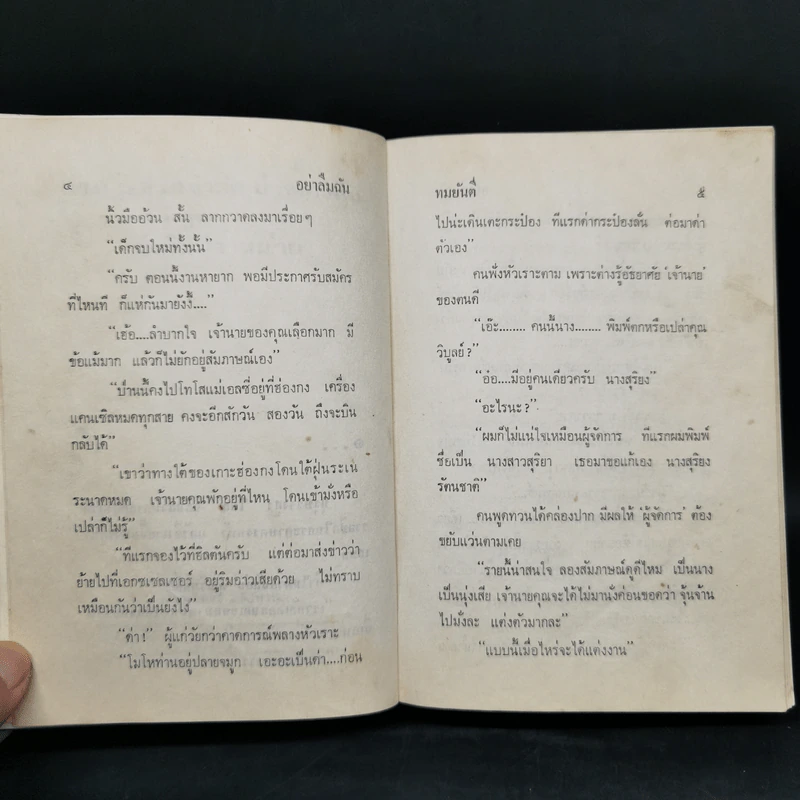 ๔ อย่าลืมฉัน
นิ้วมืออ้วน สั้น ลากกวาดลงมาเรื่อยๆ
“เด็กจบใหม่ทั้งนั้น”
“ครับ ตอนนี้งานหายาก พอมีประกาศรับสมัคร
ที่ไหนที ก็แห่กันมายังงี้....”
“เฮ้อ....ลำบากใจ เจ้านายของคุณเลือกมาก มี
ข้อแม้มาก แล้วก็ไม่ยักอยู่สัมภาษณ์เอง”
“ป่านนี้คงไปโทโสแม่เอลซี่อยู่ที่ฮ่องกง เครื่อง
แคนเซิลหมดทุกสาย คงจะอีกสักวัน สองวัน ถึงจะบิน
กลับได้”
“เขาว่าทางใต้ของเกาะฮ่องกงโดนใต้ฝุ่นระเน
ระนาดหมด เจ้านายคุณพักอยู่ที่ไหน โดนเข้ามั่งหรือ
เปล่าก็ไม่รู้”
“ทีแรกจองไว้ที่ฮิลตันครับ แต่ต่อมาส่งข่าวว่า
ย้ายไปที่เอกซเซลเซอร์ อยู่ริมอ่าวเสียด้วย ไม่ทราบ
เหมือนกันว่าเป็นยังไง”
“ด่า!” ผู้แก่วัยกว่าคาดการณ์พลางหัวเราะ
“โมโหท่านอยู่ปลายจมูก เอะอะเป็นด่า....ก่อน
ทมยันตี ๕
ไปน่ะเดินเตะกระป๋อง ทีแรกด่ากระป๋องลั่น ต่อมาด่า
ตัวเอง”
คนฟังหัวเราะตาม เพราะต่างรู้อัธยาศัย ‘เจ้านาย’
ของตนดี
“เอ๊ะ........ คนนี้นาง........ พิมพ์ตกหรือเปล่าคุณ
วิบูลย์?”
“อ๋อ....มีอยู่คนเดียวครับ นางสุริยง”
“อะไรนะ?”
“ผมก็ไม่แน่ใจเหมือนผู้จัดการ ทีแรกผมพิมพ์
ชื่อเป็น นางสาวสุริยา เธอมาขอแก้เอง นางสุริยง
รัตนชาติ”
คนพูดทวนได้คล่องปาก มีผลให้ ‘ผู้จัดการ’ ต้อง
ขยับแว่นตามเคย
“รายนี้น่าสนใจ ลองสัมภาษณ์ดูดีไหม เป็นนาง
เป็นนุ่งเสีย เจ้านายคุณจะได้ไม่มานั่งค่อนขอดว่า จุ้นจ้าน
ไปมั่งละ แต่งตัวมากละ”
“แบบนี้เมื่อไหร่จะได้แต่งงาน”